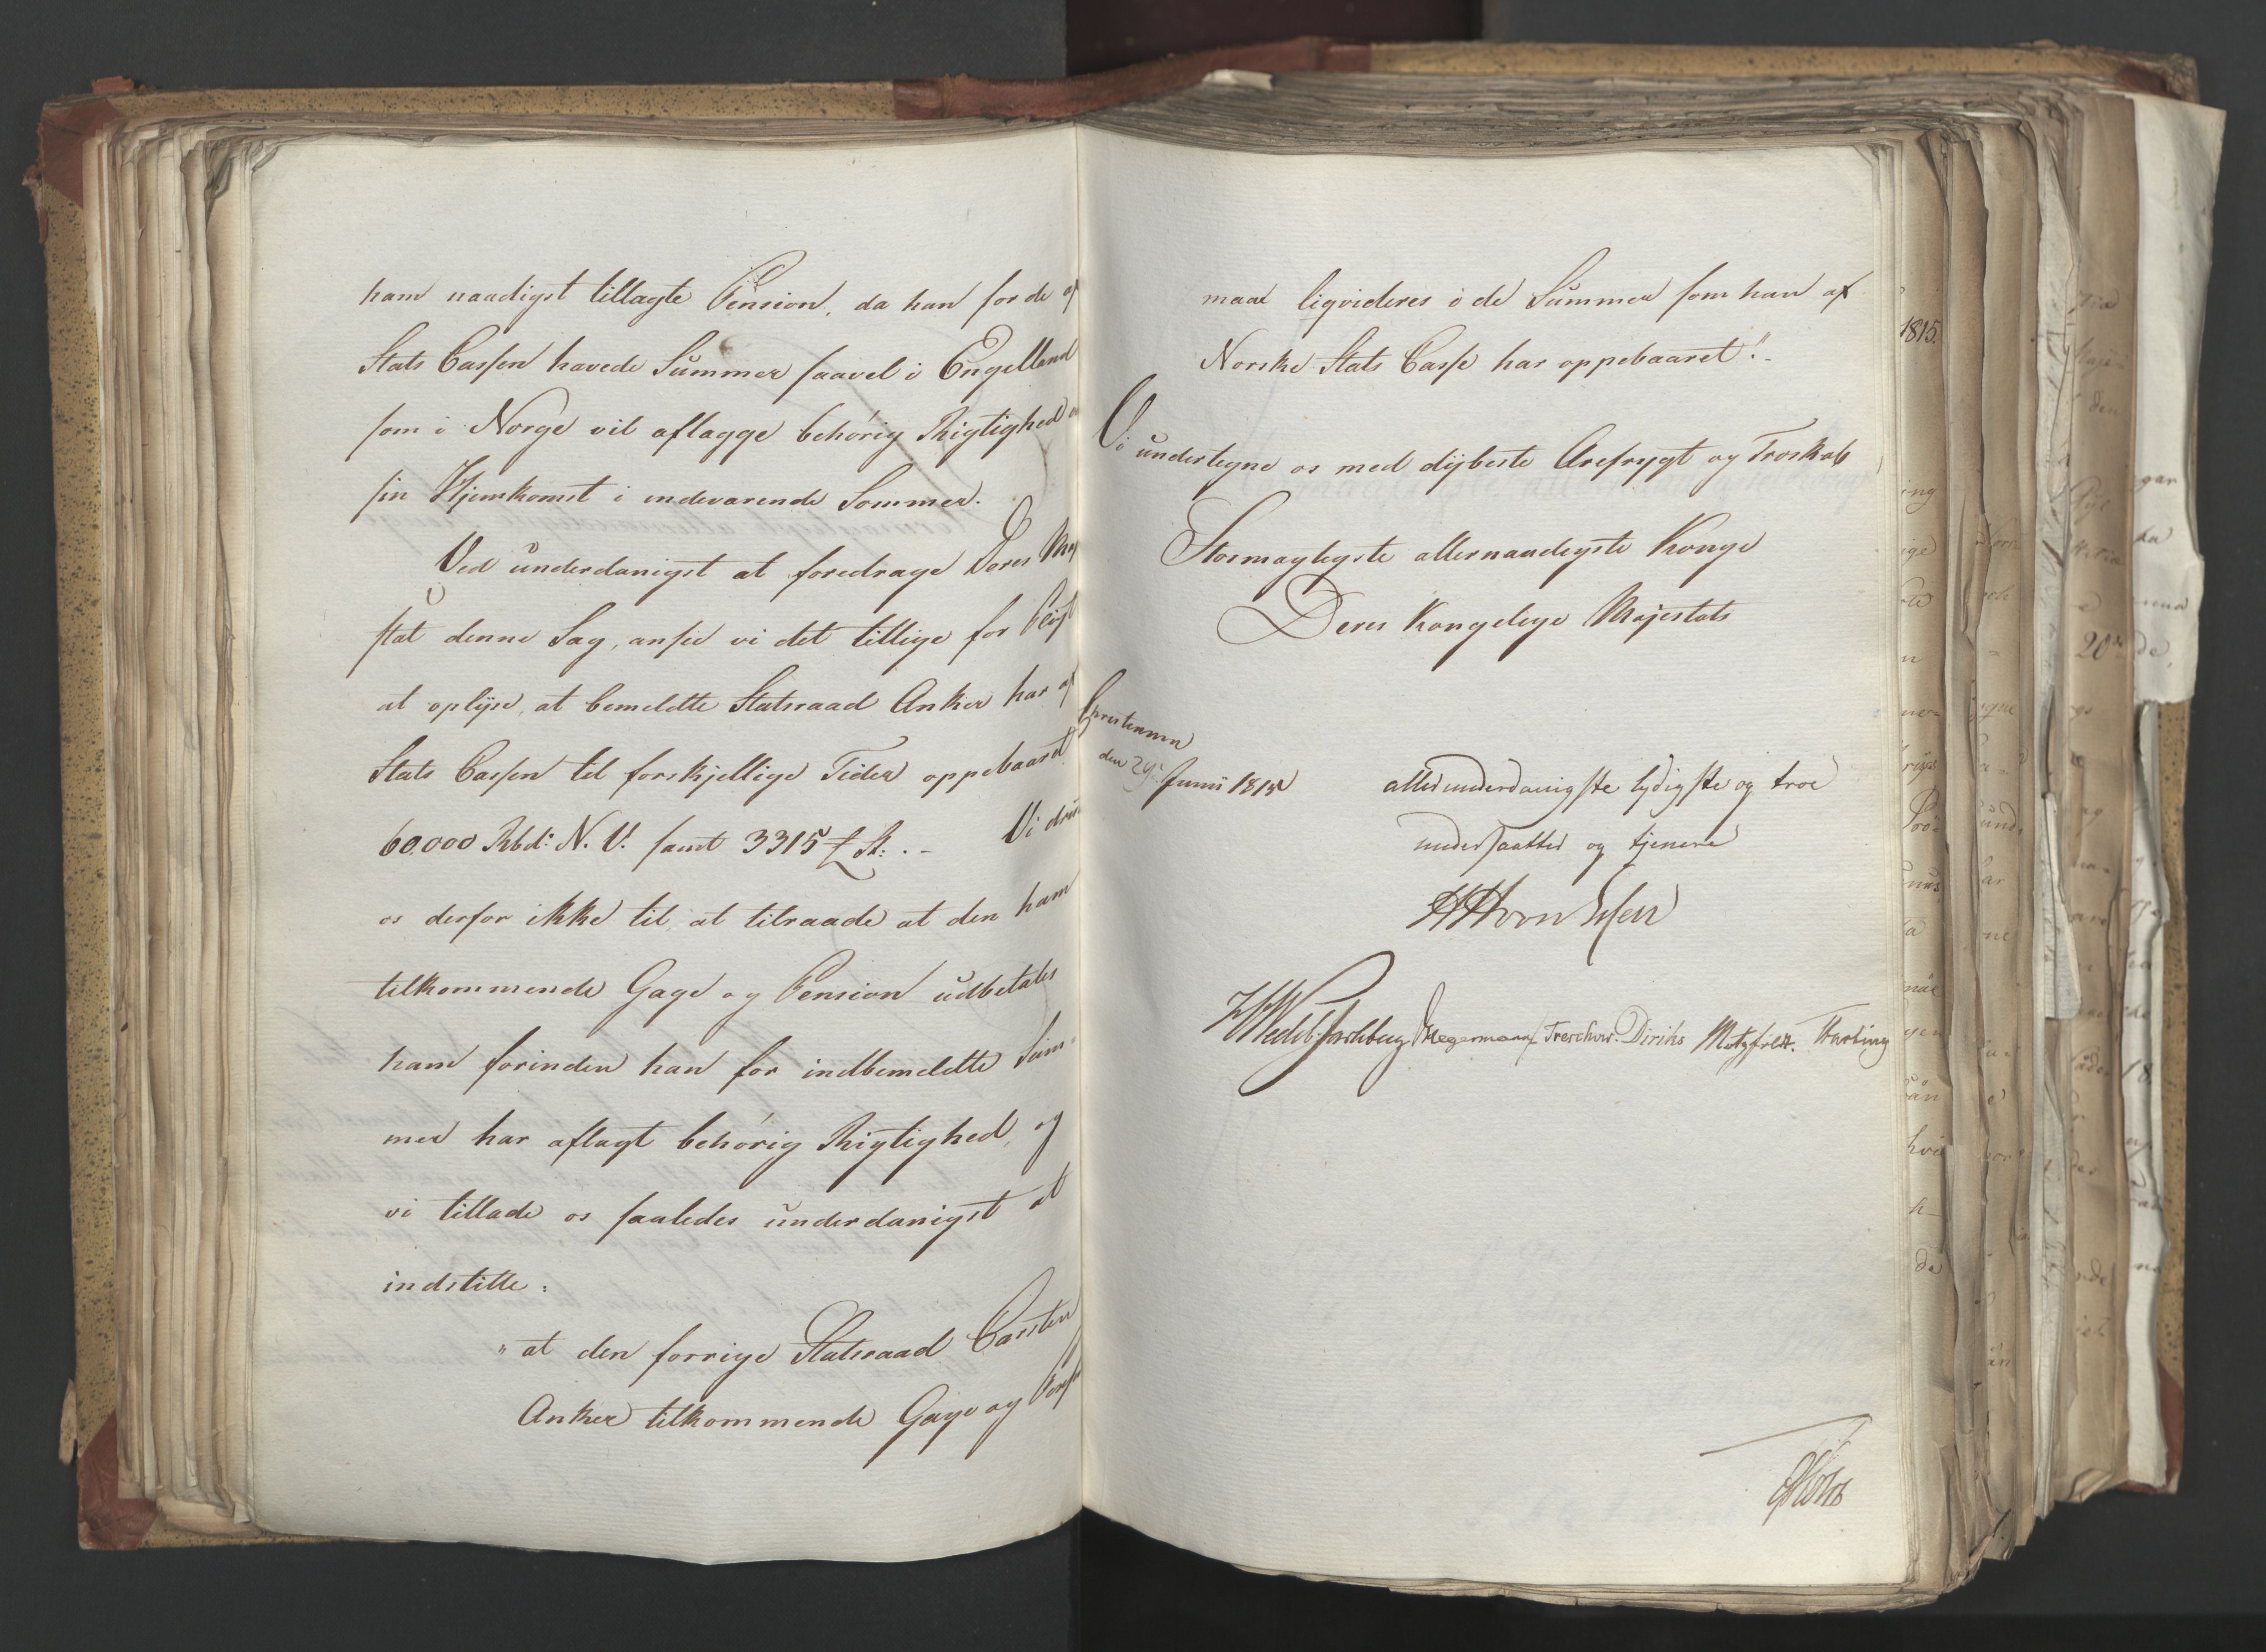 ham naadigst tillagte Pension, da han for de af
Stats Cassen havede Summer saavel i Engelland
som i Norge vil aflægge behørig Rigtighed
sin Hjemkomst i indeværende Sommer.
Ved underdanigst at foredrage Deres Maj
stæt denne Sag, ansee vi det tillige for Pligt
at oplyse, at bemeldte Statsraad Anker har af
Stats Cassen til forskjellige Tider oppebaaret
60.000 Rbd: N. V. samt 3315 £ St: . - Vi
os derfor ikke til at tilraade at den ham
tilkommende Gage og Pension udbetales
ham forinden han for indbemeldte Sum-
mer har aflagt behørig Rigtighed, og
vi tillade os saaledes underdanigst at
indstille:
" at den forrige Statsraad Carsten
Anker tilkommende Gage og
maae liqvideres i de Summer som han af
Norske Stats Casse har oppebaaret". -
Vi undertegne os med dybeste Ærefrygt og Troskab
Stormægtigste allernaadigste Konge
Deres Kongelige Majestæts
Christiania
den 29. Junii 1815
allerunderdanigste lydigste og troe
undersaatter og tjenere
HH von Essen
HWedel Jarlsberg Hegermann Treschow. Diriks Motzfeldt. Hartvig
1815.